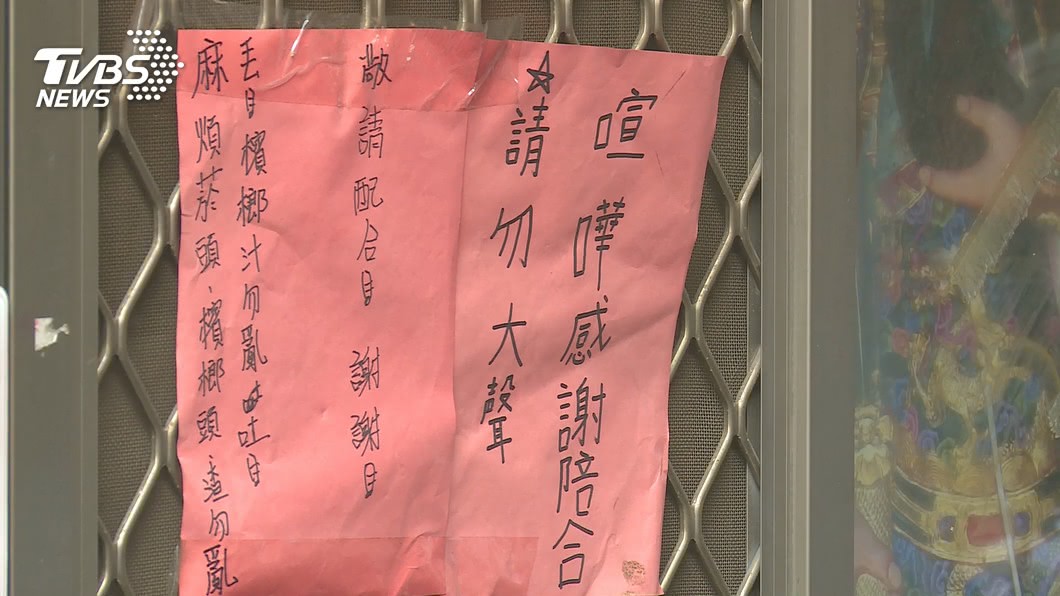 TVBS
NEWS
麻煩菸頭、檳榔頭渣勿亂
丟日檳榔汁勿亂吐日
敞請配合目 謝謝目
☆請勿大聲
喧嘩感謝陪合